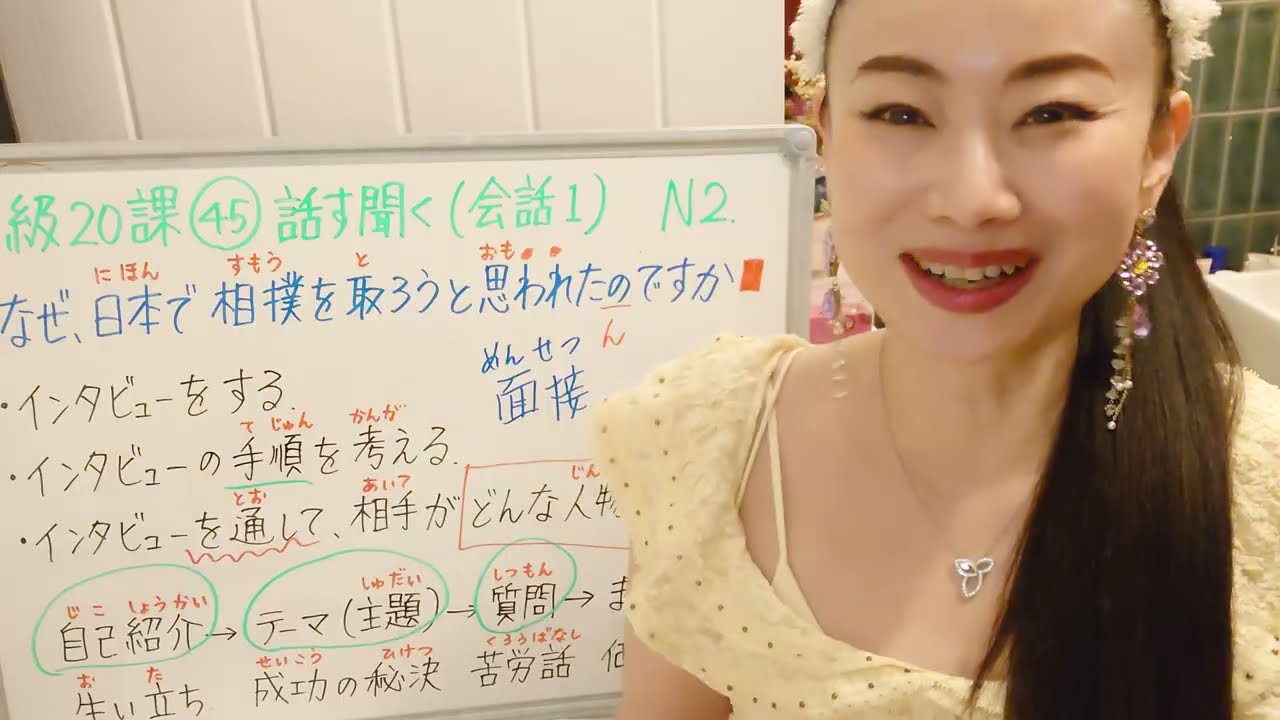 級20課㊺話す聞く(会話1) N2.
にほん すもう と おも
なぜ、日本で相撲を取ろうと思われたのですか
ん
めんせつ
面接
・インタビューをする.
てじゅん かんが
・インタビューの手順を考える.
とお あいて じん
・インタビューを通して、相手がどんな人物
じこしょうかい しゅだい しつもん
自己紹介→テーマ(主題)→質問→ま
お た せいこう ひけつ くろうばなし
生い立ち 成功の秘決 苦労話